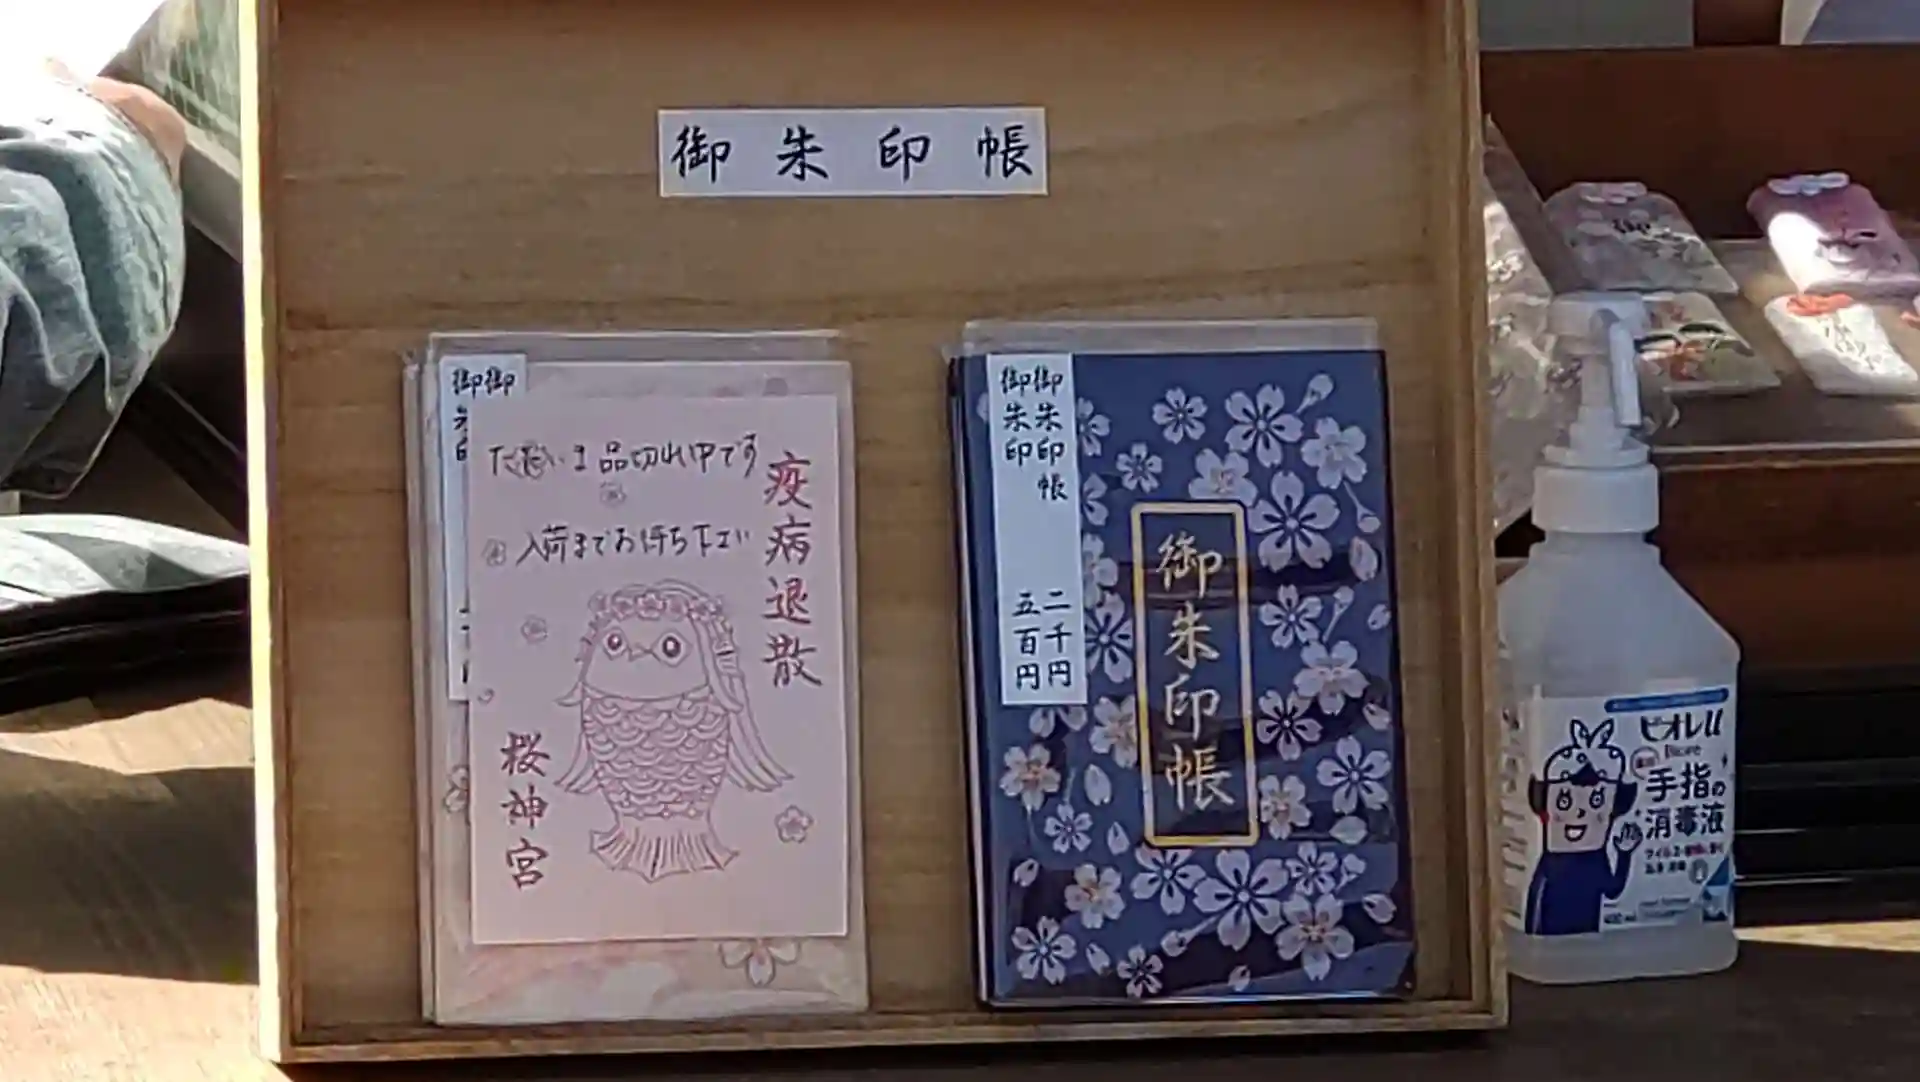 御朱印帳
御朱印帳
御朱印
二千円
五百円
御朱印帳
御
御朱印
ただいま品切れ中です
入荷までお待ち下さい
疫病退散
桜神宮
ビオレu
Biore
手指の
消毒液